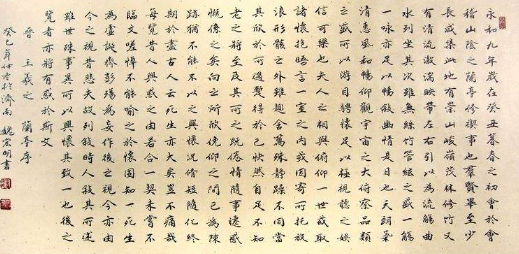 永和九年歲在癸丑暮春之初會於會
稽山陰之蘭亭修禊事也群賢畢至少
長咸集此地有崇山峻嶺茂林修竹又
有清流激湍映帶左右引以為流觴曲
水列坐其次雖無絲竹管弦之盛一觴
一詠亦足以暢敘幽情是日也天朗氣
清惠風和暢仰觀宇宙之大俯察品類
之盛所以遊目騁懷足以極視聽之娛
信可樂也夫人之相與俯仰一世或取
諸懷抱晤言一室之內或因寄所託放
浪形骸之外雖趣舍萬殊靜躁不同當
其欣於所遇暫得於己快然自足不知
老之將至及其所之既倦情隨事遷感
慨係之矣向之所欣俯仰之間已為陳
跡猶不能不以之興懷況修短隨化終
期於盡古人云死生亦大矣豈不痛哉
每覽昔人興感之由若合一契未嘗不
臨文嗟悼不能喻之於懷固知一死生
為虛誕齊彭殤為妄作後之視今亦由
今之視昔悲夫故列敘時人錄其所述
雖世殊事異所以興懷其致一也後之
覽者亦將有感於斯文
晉 王羲之 蘭亭序
癸巳年仲冬於濟南 魏宏明書